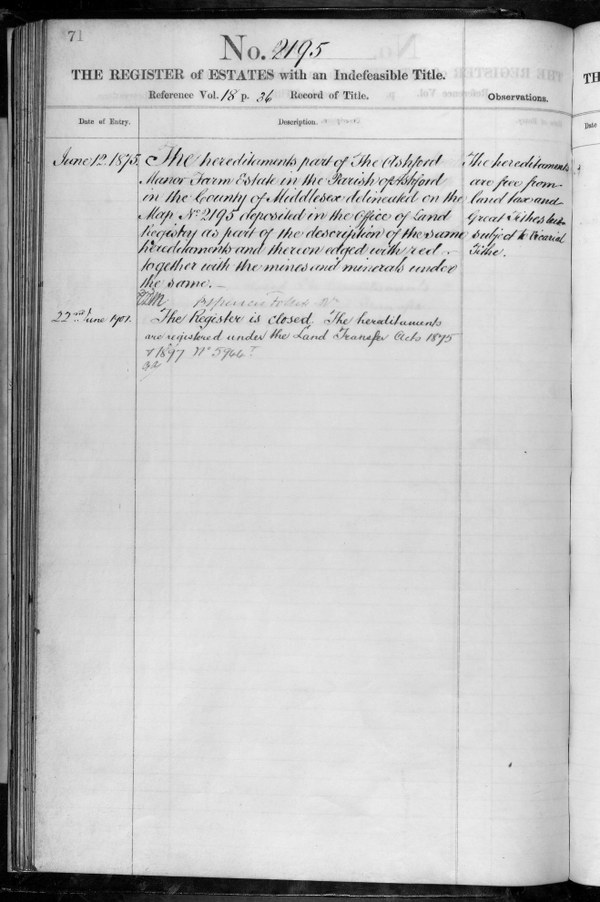 71
No. 2195
THE REGISTER of ESTATES with an Indefeasible Title.
Reference Vol. 18 p. 36 Record of Title.
Observations.
Date of Entry.
Description.
June 12. 1875.
The hereditaments part of The Ashford
Manor Farm Estate in the Parish of Ashford
in the County of Middlesex delineated on the
Map No 2195 deposited in the Office of Land
Registry as part of the description of the same
hereditaments and thereon edged with red
together with the mines and minerals under
the same.
The hereditaments
are free from
land tax and
Great Tithes but
subject to Vicarial
Tithe.
22nd June 1901.
The Register is closed. The heraditaments
are registered under the Land Transfer Acts 1875
& 1897 No 5966
TH
Date